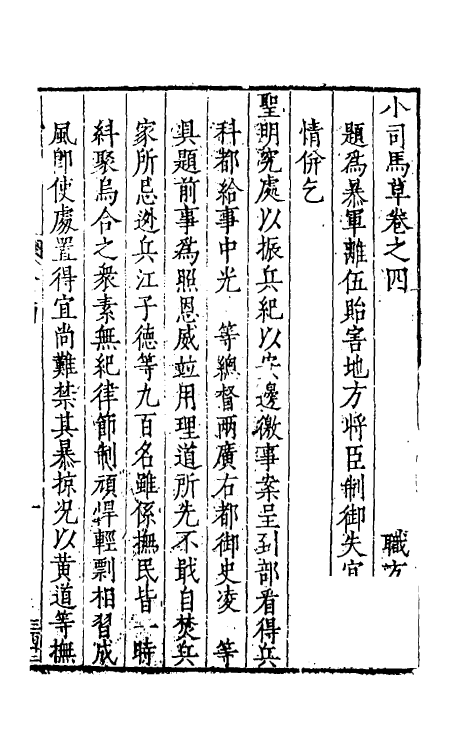 小司馬草卷之四　職方
題為暴軍離伍貽害地方將臣制御失宜
情併乞
聖明究處以振兵紀以安邊徼事案呈到部看得兵
科都給事中光　等總督兩廣右都御史凌　等
具題前事為照恩威並用理道所先不戢自焚兵
家所忌迯兵江子德等九百名雖係撫民皆一時
糾聚烏合之衆素無紀律節制頑悍輕剽相習成
風即使處置得宜尚難禁其暴掠況以黄道等撫